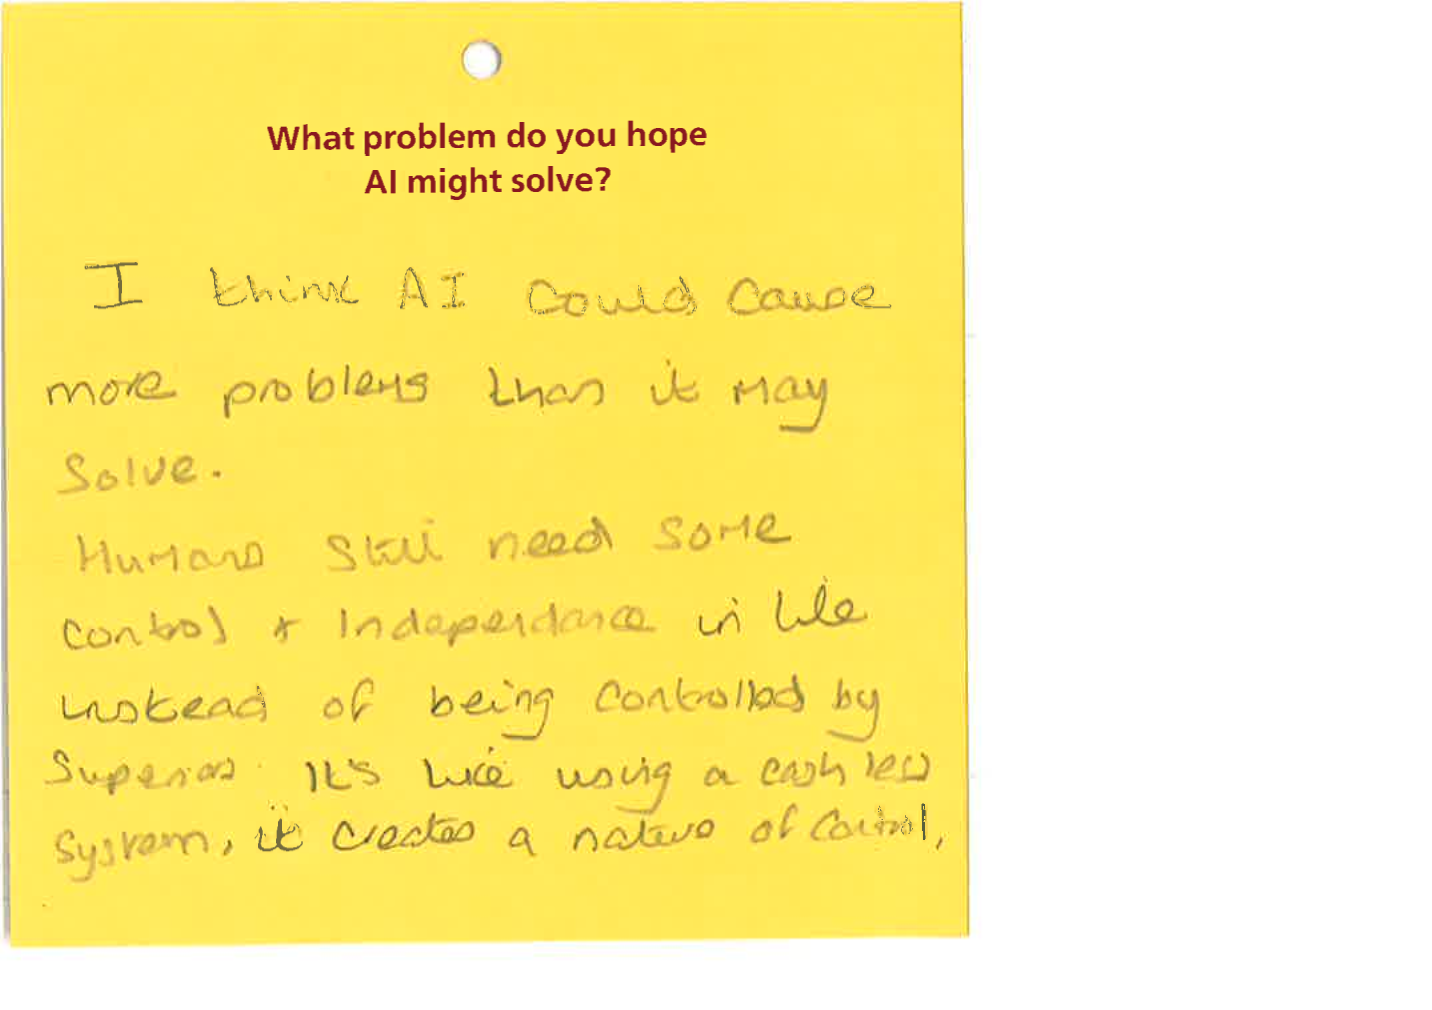 What problem do you hope
AI might solve?
I think AI could cause
more problems than it may
solve.
Humans still need some
control & Independance in life
instead of being controlled by
Superiors. It's like using a cash less
system, it creates a nature of control,